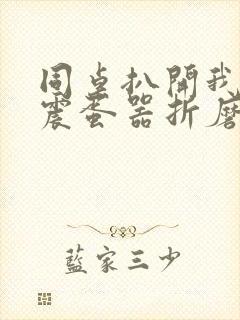 同桌扒開我
震蛋器折磨
藍家三少